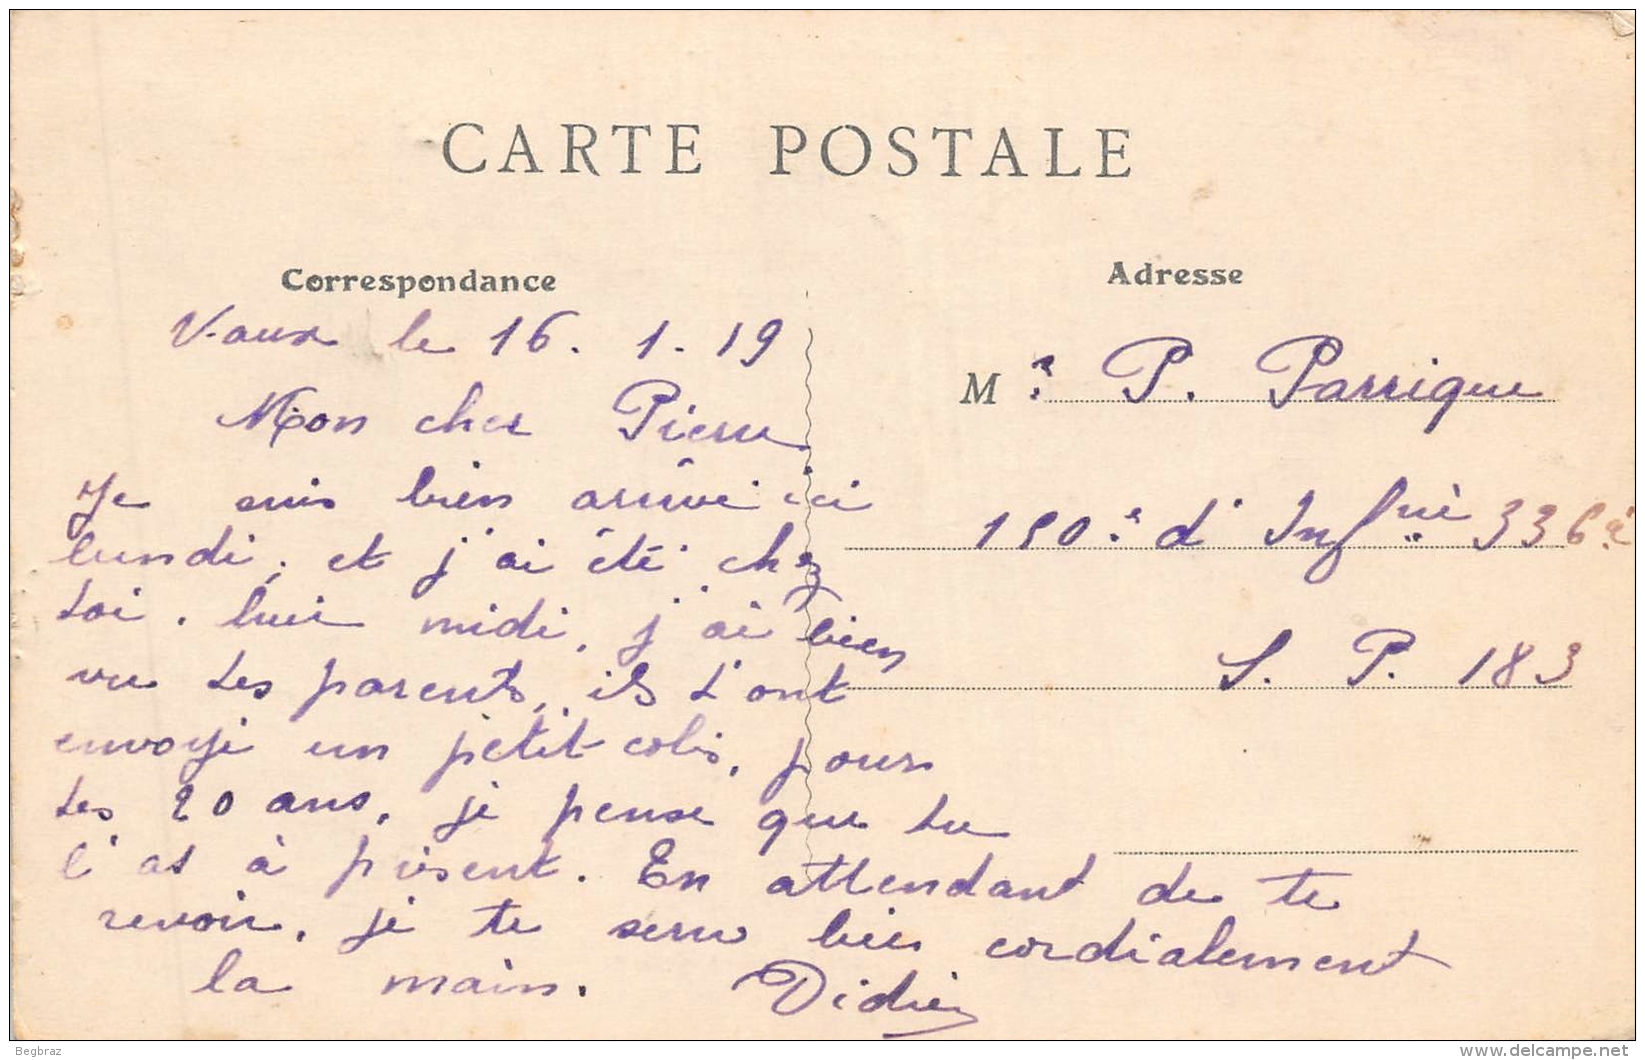 CARTE POSTALE
Correspondance
Vaux le 16. 1. 19
Mon cher Pierre
Je suis bien arrivé ici
lundi, et j'ai été chez
toi. hier midi, j'ai bien
vu tes parents, ils t'ont
envoyé un petit colis, pour
tes 20 ans, je pense que tu
l'as à présent. En attendant de te
revoir, je te serre bien cordialement
la main. Didier
Adresse
Mr P. Parrigue
150e d'Infrie 336e
S. P. 183
Begbraz
delcampe.net